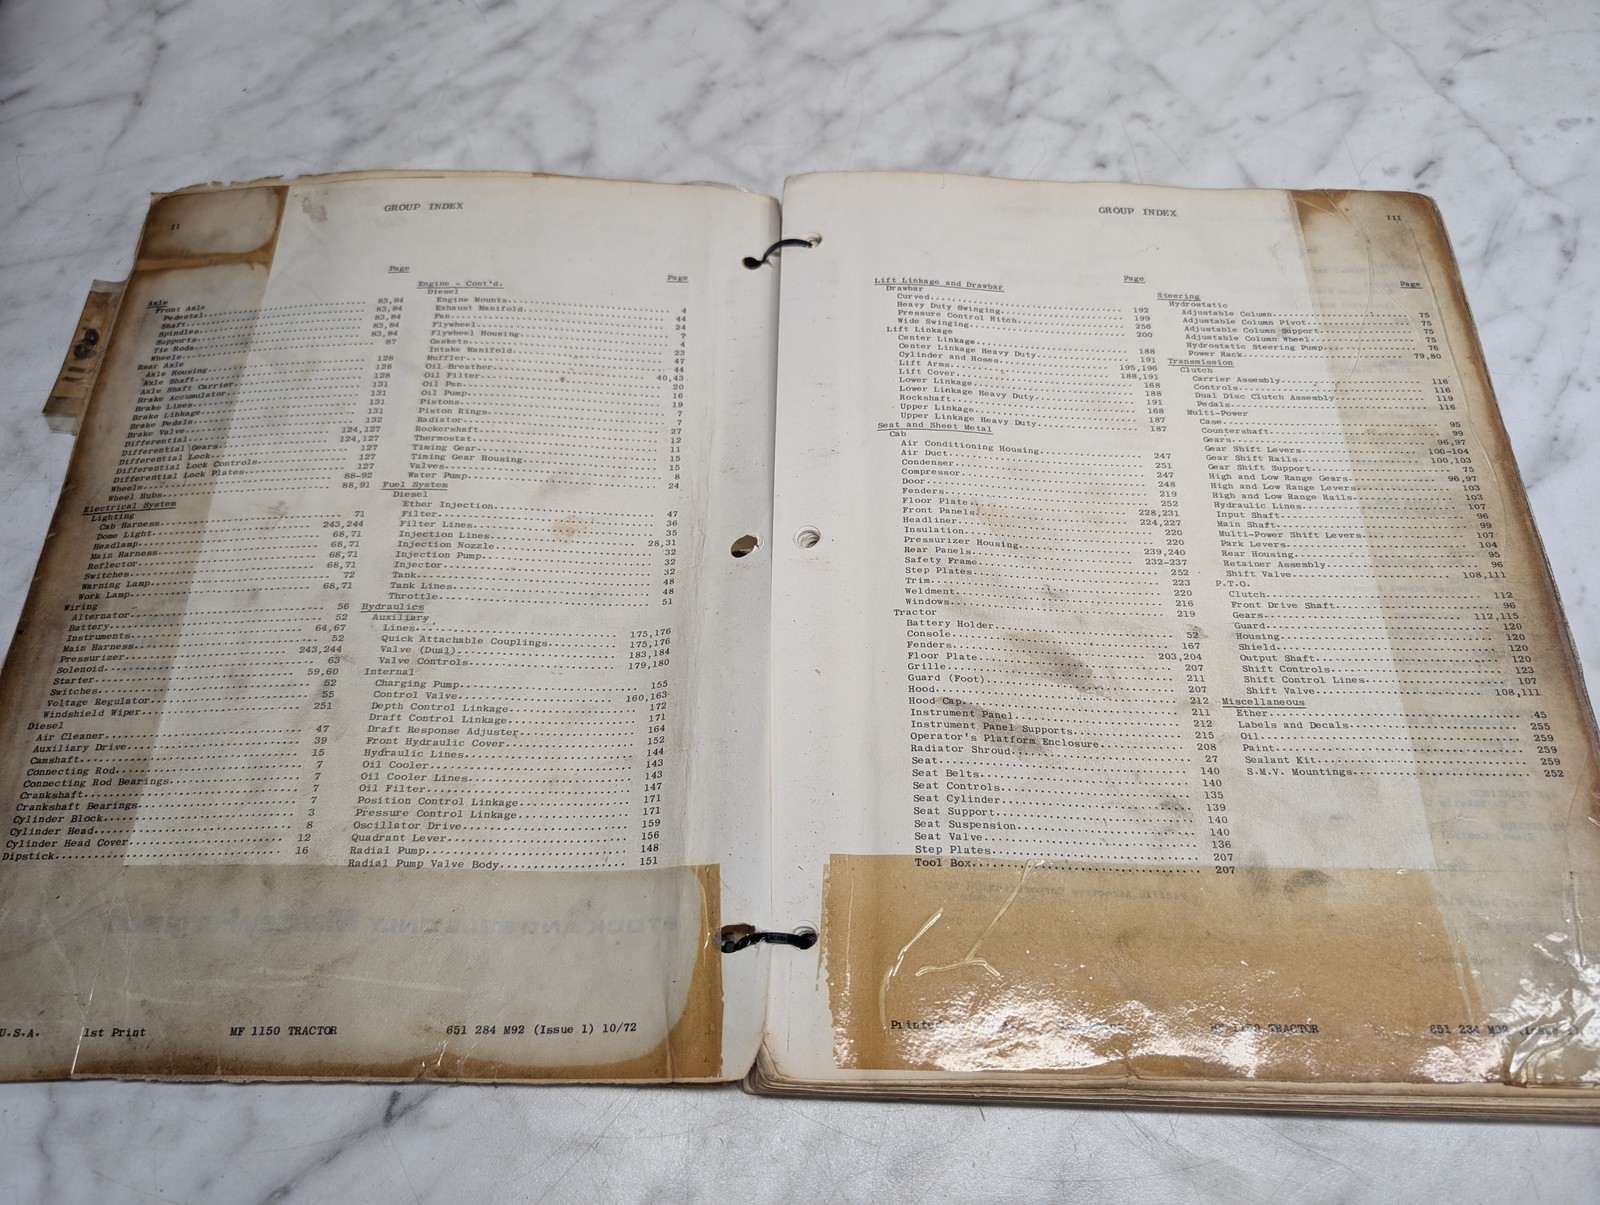 II
GROUP INDEX
Page
Axle
Front Axle
Pedestal 83,84
Shaft 83,84
Spindles 83,84
Supports 83,84
Tie Rods 83,84
Wheels 87
Rear Axle
Axle Housing 128
Axle Shaft 128
Axle Shaft Carrier 128
Brake Accumulator 131
Brake Lines 131
Brake Linkage 131
Brake Pedals 131
Brake Valve 132
Differential 124,127
Differential Gears 124,127
Differential Lock 127
Differential Lock Controls 127
Differential Lock Plates 127
Wheels 88-92
Wheel Hubs 88,91
Electrical System
Lighting
Cab Harness 71
Dome Light 243,244
Headlamp 68,71
Main Harness 68,71
Reflector 68,71
Switches 68,71
Warning Lamp 72
Work Lamp 68,71
Wiring
Alternator 56
Battery 52
Instruments 64,67
Main Harness 52
Pressurizer 243,244
Solenoid 63
Starter 59,60
Switches 52
Voltage Regulator 55
Windshield Wiper 251
Diesel
Air Cleaner 47
Auxiliary Drive 39
Camshaft 15
Connecting Rod 7
Connecting Rod Bearings 7
Crankshaft 7
Crankshaft Bearings 7
Cylinder Block 3
Cylinder Head 8
Cylinder Head Cover 12
Dipstick 16
Page
Engine - Cont'd.
Diesel
Engine Mounts 4
Exhaust Manifold 44
Fan 24
Flywheel 7
Flywheel Housing 4
Gaskets 23
Intake Manifold 47
Muffler 44
Oil Breather 40,43
Oil Filter 20
Oil Pan 16
Oil Pump 19
Pistons 7
Piston Rings 7
Radiator 27
Rockershaft 12
Thermostat 11
Timing Gear 15
Timing Gear Housing 15
Valves 8
Water Pump 24
Fuel System
Diesel
Ether Injection 47
Filter 36
Filter Lines 35
Injection Lines 28,31
Injection Nozzle 32
Injection Pump 32
Injector 32
Tank 48
Tank Lines 48
Throttle 51
Hydraulics
Auxiliary
Lines 175,176
Quick Attachable Couplings 175,176
Valve (Dual) 183,184
Valve Controls 179,180
Internal
Charging Pump 155
Control Valve 160,163
Depth Control Linkage 172
Draft Control Linkage 171
Draft Response Adjuster 164
Front Hydraulic Cover 152
Hydraulic Lines 144
Oil Cooler 143
Oil Cooler Lines 143
Oil Filter 147
Position Control Linkage 171
Pressure Control Linkage 171
Oscillator Drive 159
Quadrant Lever 156
Radial Pump 148
Radial Pump Valve Body 151
U.S.A. 1st Print MF 1150 TRACTOR 651 284 M92 (Issue 1) 10/72
GROUP INDEX
III
Page
Lift Linkage and Drawbar
Drawbar
Curved 192
Heavy Duty Swinging 199
Pressure Control Hitch 256
Wide Swinging 200
Lift Linkage
Center Linkage 188
Center Linkage Heavy Duty 191
Cylinder and Hoses 195,196
Lift Arms 188,191
Lift Cover 168
Lower Linkage 188
Lower Linkage Heavy Duty 191
Rockshaft 168
Upper Linkage 187
Upper Linkage Heavy Duty 187
Seat and Sheet Metal
Cab
Air Conditioning Housing 247
Air Duct 251
Condenser 247
Compressor 248
Door 219
Fenders 252
Floor Plate 228,231
Front Panels 224,227
Headliner 220
Insulation 220
Pressurizer Housing 239,240
Rear Panels 232-237
Safety Frame 252
Step Plates 223
Trim 220
Weldment 216
Windows 219
Tractor
Battery Holder 52
Console 167
Fenders 203,204
Floor Plate 207
Grille 211
Guard (Foot) 207
Hood 212
Hood Cap 211
Instrument Panel 212
Instrument Panel Supports 215
Operator's Platform Enclosure 208
Radiator Shroud 27
Seat 140
Seat Belts 140
Seat Controls 135
Seat Cylinder 139
Seat Support 140
Seat Suspension 140
Seat Valve 136
Step Plates 207
Tool Box 207
Page
Steering
Hydrostatic
Adjustable Column 75
Adjustable Column Pivot 75
Adjustable Column Support 75
Adjustable Column Wheel 75
Hydrostatic Steering Pump 76
Power Rack 79,80
Transmission
Clutch
Carrier Assembly 116
Controls 116
Dual Disc Clutch Assembly 119
Pedals 116
Multi-Power
Case 95
Countershaft 99
Gears 96,97
Gear Shift Levers 100-104
Gear Shift Rails 100,103
Gear Shift Support 75
High and Low Range Gears 96,97
High and Low Range Levers 103
High and Low Range Rails 103
Hydraulic Lines 107
Input Shaft 96
Main Shaft 99
Multi-Power Shift Levers 107
Park Levers 104
Rear Housing 95
Retainer Assembly 96
Shift Valve 108,111
P.T.O.
Clutch 112
Front Drive Shaft 96
Gears 112,115
Guard 120
Housing 120
Shield 120
Output Shaft 120
Shift Controls 123
Shift Control Lines 107
Shift Valve 108,111
Miscellaneous
Ether 45
Labels and Decals 255
Oil 259
Paint 259
Sealant Kit 259
S.M.V. Mountings 252
TRACTOR